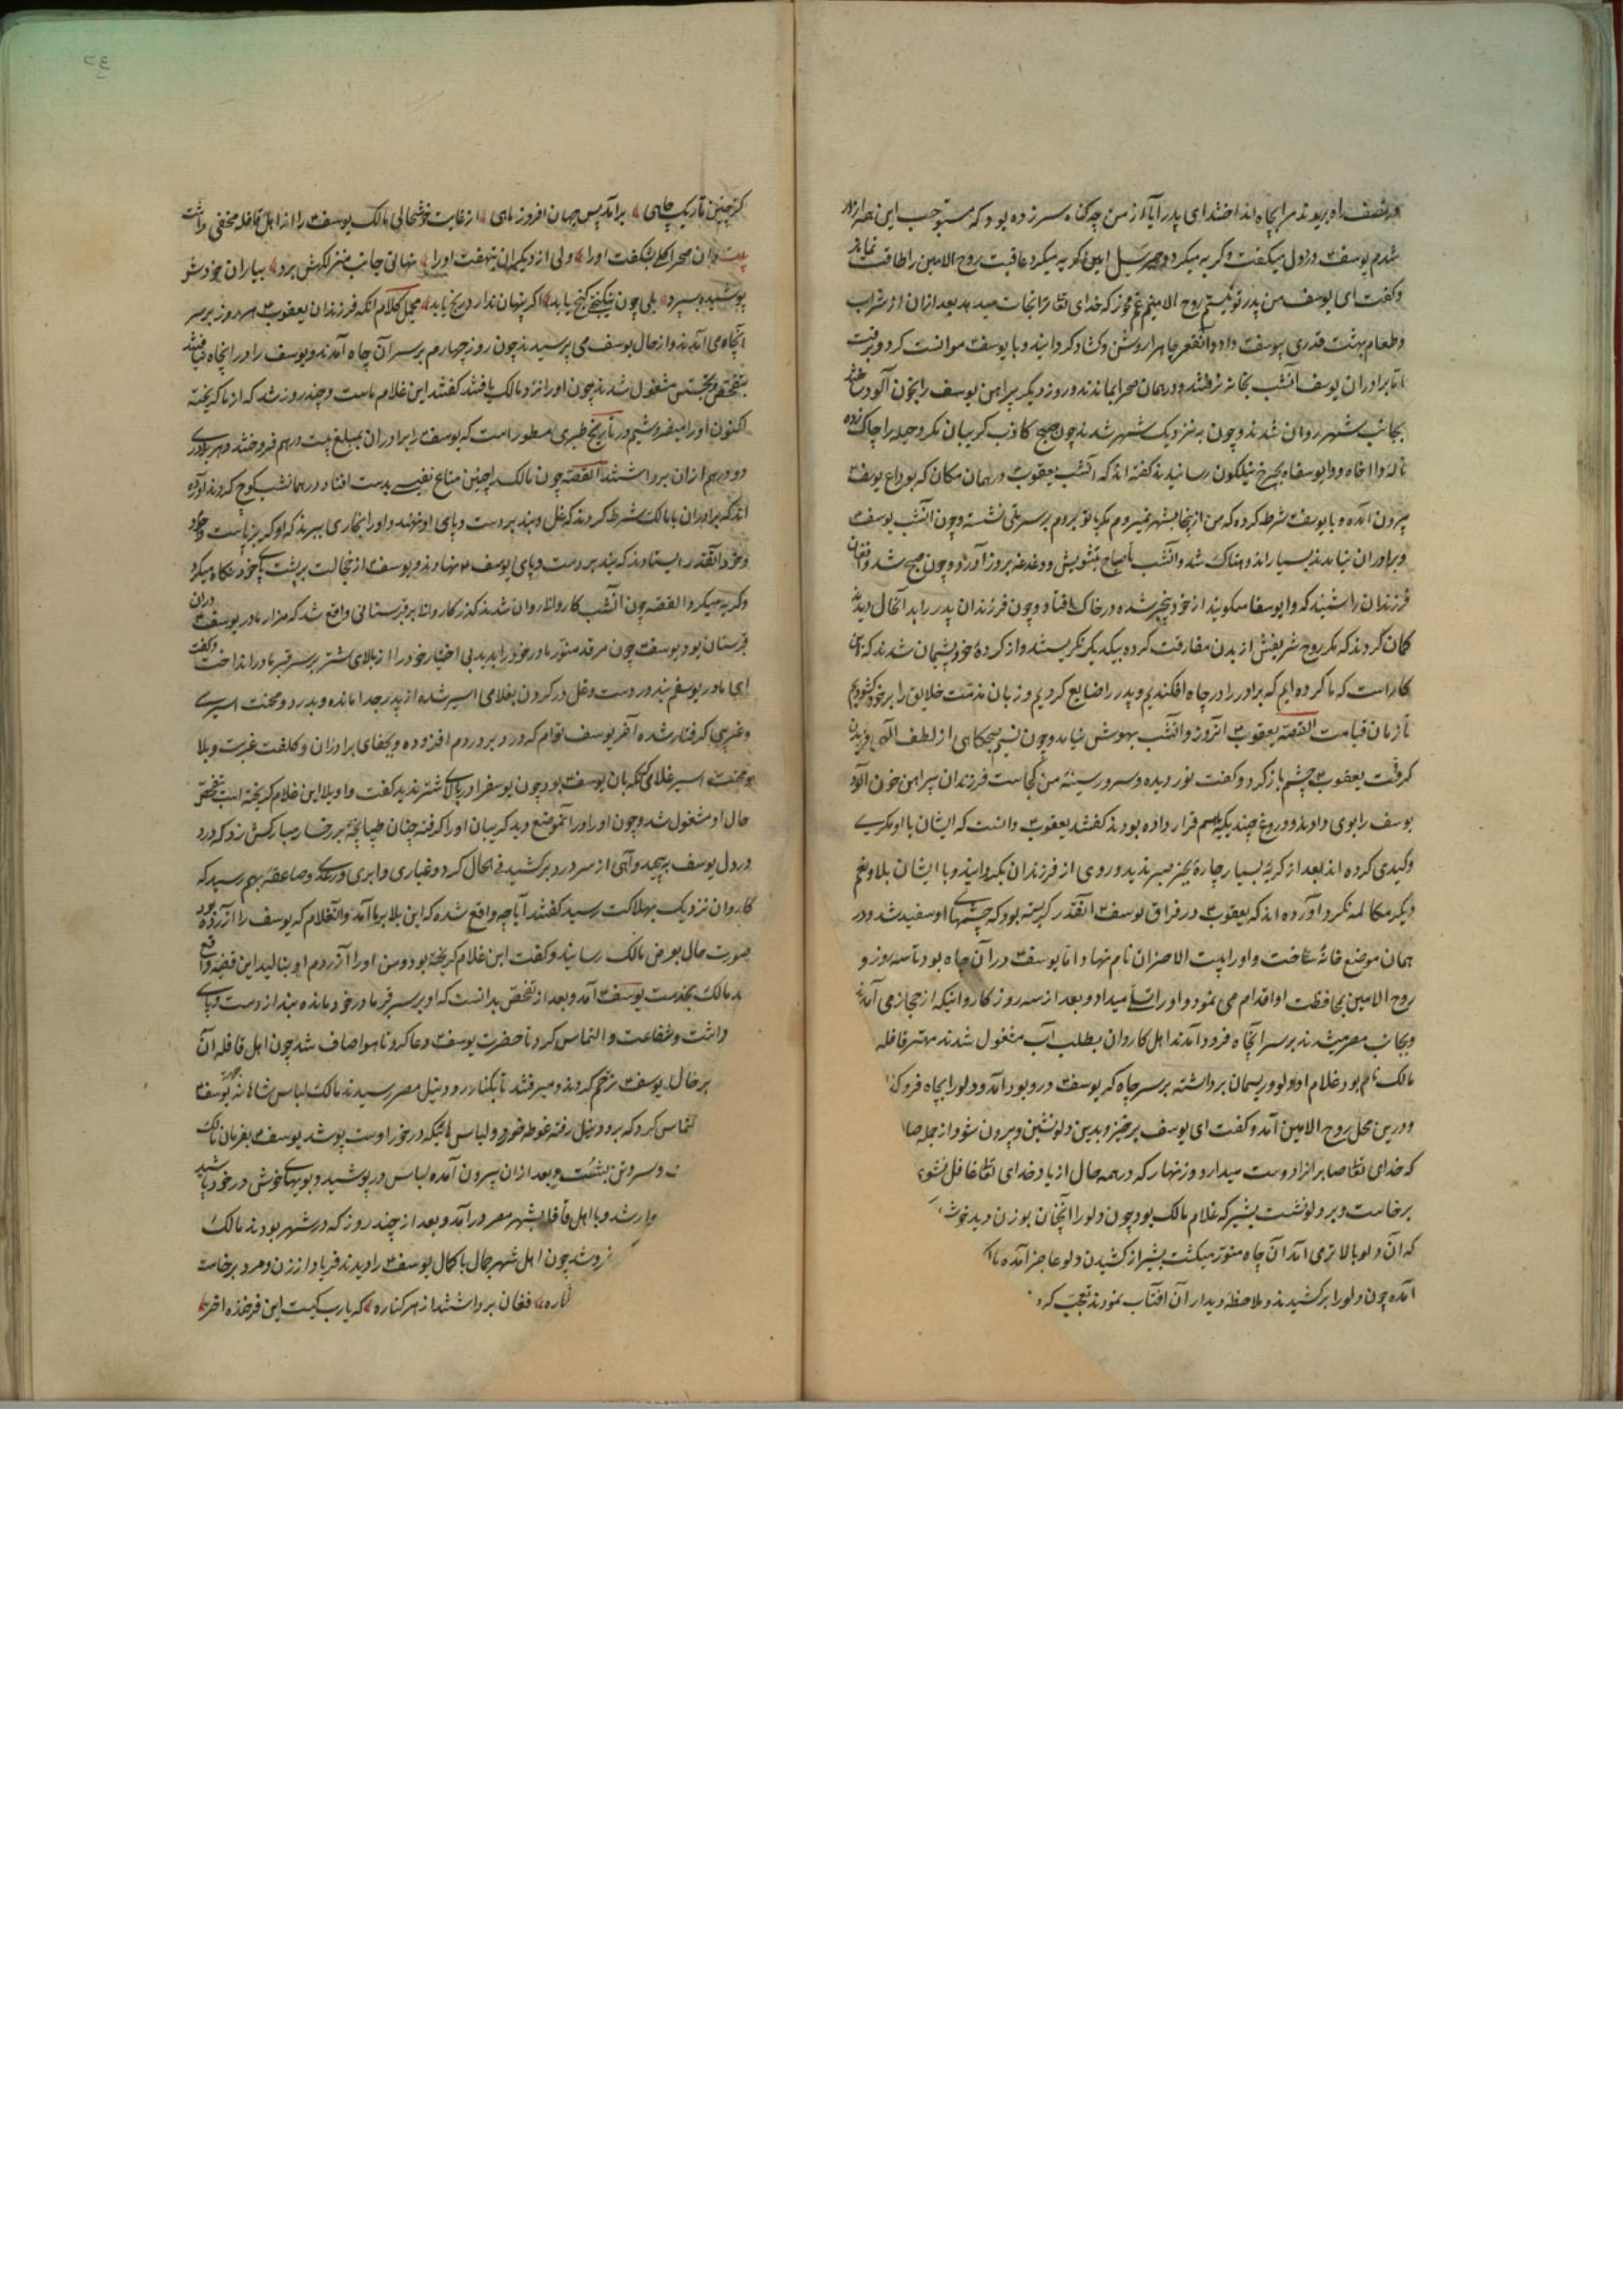 بنصف راه بریدند مرا بچاه انداختند ای پدر آیا از من چه گناه سرزده بود که مستوجب این همه آزار
شدم یوسف ع در دل میگفت و گریه میکرد و جبرئیل امین گریه میکرد عاقبت روح الامین را طاقت نماند
و گفت ای یوسف من پدر تو نیستم روح الامینم غم مخور که خدای تعالی ترا نجات میدهد بعد از آن از شراب
و طعام بهشت قدری بیوسف ع داد و آن قعر چاه را روشن و گشاد گردانید و با یوسف ع موانست کرد و برفت
اما برادران یوسف آنشب بخانه نرفتند و در همان صحرا بماندند و روز دیگر پیراهن یوسف را بخون آلود ساختند
بجانب شهر روان شدند و چون به نزدیک شهر شدند چون صبح کاذب گریبان مکر و حیله را چاک زده
ناله وا اخاه و وا یوسفاه بچرخ نیلگون رسانیدند گفته اند که آنشب یعقوب ع در همان مکان که بوداع یوسف ع
بیرون آمده و با یوسف ع شرط کرده که من از اینجا بشهر نمیروم مگر با تو بروم بر سر پلی نشسته و چون آنشب یوسف ع
و برادران نیامدند بسیار اندوهناک شد و آنشب تا صباح بتشویش و دغدغه بروز آورد و چون صبح شد و افغان
فرزندان را شنید که وا یوسفا میگویند از خود بیخبر شده در خاک افتاد و چون فرزندان پدر را بدآنحال دیدند
گمان کردند که مگر روح شریفش از بدن مفارقت کرده بیکدیگر نگریستند و از کردهٔ خود پشیمان شدند که این چه
کار است که ما کرده ایم که برادر را در چاه افکندیم و پدر را ضایع کردیم و زبان مذمت خلایق را بر خود گشودیم
تا زمان قیامت القصه یعقوب ع آنروز و آنشب بهوش نیامد و چون نسیم صبحگاهی از لطف الهی وزیدن
گرفت یعقوب ع چشم باز کرد و گفت نور دیده و سرور سینهٔ من کجاست فرزندان پیراهن خون آلود
یوسف را بوی دادند و دروغ چند که با هم قرار داده بودند گفتند یعقوب ع دانست که ایشان با او مکری
و کیدی کرده اند بعد از گریهٔ بسیار چارهٔ بجز صبر ندید و روی از فرزندان بگردانید و با ایشان بلا و نعم
دیگر مکالمه نکرد و آورده اند که یعقوب ع در فراق یوسف ع آنقدر گریسته بود که چشمهای او سفید شد و در
همان موضع خانهٔ ساخت و او را بیت الاحزان نام نهاد اما یوسف ع در آن چاه بود تا سه روز و
روح الامین بمحافظت او اقدام می نمود و او را تسلی میداد و بعد از سه روز کاروانیکه از حجاز می آمدند
و بجانب مصر میشدند بر سر آنچاه فرود آمدند اهل کاروان بطلب آب مشغول شدند مهتر قافله
مالک نام بود غلام او دلو و ریسمان برداشته بر سر چاه که یوسف ع در و بود آمد و دلو را بچاه فرو کذ
و در این محل روح الامین آمد و گفت ای یوسف برخیز و بدین دلو نشین و بیرون شو و از جمله صا
که خدای تعالی صابران را دوست میدارد و زنهار که در همه حال از یاد خدای تعالی غافل نشوی
برخاست و بر دلو نشست بشیر که غلام مالک بود چون دلو را آنچنان بوزن دید خوش
که آن دلو بالا تر می آمد آن چاه منور میگشت بشیر از کشیدن دلو عاجز آمده ما
آمده چون دلو را بر کشیدند و ملاحظهٔ دیدار آن آفتاب نمودند تعجب کرد
۲٤
کز چنین تاریک چاهی برآمد پس جهان افروز ماهی از غایت خوشحالی مالک یوسف ع را از اهل قافله مخفی داشت
بیت در آن صحرا گلی بشکفت او را ولی از دیگران بنهفت او را نهانی جانب منزلگهش برد بیاران خودش
پوشیده بسپرد بلی چون نیکبختی گنج یابد اگر پنهان ندارد رنج یابد مجمل کلام آنکه فرزندان یعقوب ع هر روز بر سر
آنچاه می آمدند و از حال یوسف می پرسیدند چون روز چهارم بر سر آن چاه آمدند و یوسف را در آنچاه نیافتند
بتفحص و تجسس مشغول شدند چون او را نزد مالک یافتند گفتند این غلام ماست و چند روز شد که از ما گریخته
اکنون او را میفروشیم در تاریخ طبری مسطور است که یوسف ع را برادران بمبلغ بیست درهم فروختند و هر برادری
دو درهم از آن برداشتند القصه چون مالک را چنین متاع نفیس بدست افتاد در همانشب کوچ کردند آورده
اند که برادران با مالک شرط کردند که غل و بند بر دست و پای او نهند و او را بخاری ببرند که او گریزپاست
و خود آنقدر ایستادند که بند بر دست و پای یوسف ع نهادند و یوسف ع از خجالت بر پشت پای خود نگاه میکرد
و گریه میکرد القصه چون آنشب کاروان روان شدند گذر کاروان بر قبرستانی واقع شد که مزار مادر یوسف ع در آن
قبرستان بود یوسف ع چون مرقد منور مادر خود را بدید بی اختیار خود را از بالای شتر بر سر قبر مادر انداخت و گفت
ای مادر یوسفم بند در دست و غل در گردن بغلامی اسیر شده از پدر جدا مانده و بدرد و محنت اسیری
و غریبی گرفتار شده آخر یوسف توام که درد بر دردم افزوده و بجفای برادران و کلفت غربت و بلا
و محنت اسیر غلامی که نگهبان یوسف ع بود چون یوسف را در بالای شتر ندید گفت واویلا این غلام گریخته است بتفحص
حال او مشغول شد و چون او را در آنموضع دید گریبان او را گرفته چنان طپانچهٔ بر رخسار مبارکش زد که درد
در دل یوسف ع پیچید و آهی از سر درد بر کشید فی الحال گرد و غباری و ابری و رعدی و صاعقه بهم رسید که
کاروان نزدیک بهلاکت رسید گفتند آیا چه واقع شده که این بلا بر ما آمد و آنغلام که یوسف را آزرده بود
صورت حال بعرض مالک رسانید و گفت این غلام گریخته بود و من او را آزردم او بنالید این قضیه واقع
د مالک بخدمت یوسف ع آمد و بعد از تفحص بدانست که او بر سر قبر مادر خود مانده بند از دست و پای
داشت و شفاعت و التماس کرد تا حضرت یوسف ع دعا کرد تا هوا صاف شد چون اهل قافله آن
بر حال یوسف ع ترحم کردند و میرفتند تا بکنار رود نیل مصر رسیدند مالک لباس شاهانه بجهة یوسف ع
لتماس کرد که برود نیل رفته غوطه خورد و لباس هائیکه در خور اوست پوشد یوسف ع بفرمان مالک
ـ و سر و تن بشست و بعد از آن بیرون آمده لباس در پوشید و بویهای خوش در خود پاشید
وار شد و با اهل قافله بشهر مصر درآمد و بعد از چند روز که در شهر بودند مالک
فروشد چون اهل شهر جمال با کمال یوسف ع را دیدند فریاد از زن و مرد برخاست
ـاره فغان برداشتند از هر کناره که یارب کیست این فرخنده اختر